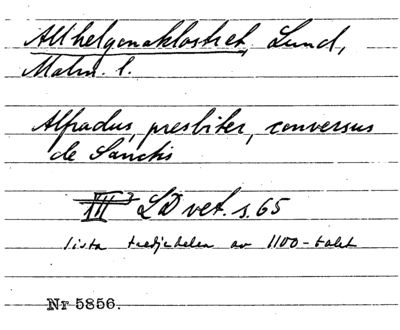 Allhelgonaklostret, Lund,
Malm. l.
Alfradus, presbiter, conversus
de Sanctis
III³ LD vet. s. 65
sista tredjedelen av 1100-talet
Nr 5856.